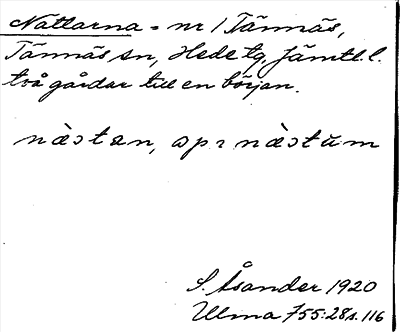 Nattarna = nr 1 Tännäs,
Tännäs sn, Hede tg, Jämtl. l.
två gårdar till en början.
nàstan, opr nàstum
S. Åsander 1920
Ulma 755:28 s. 116